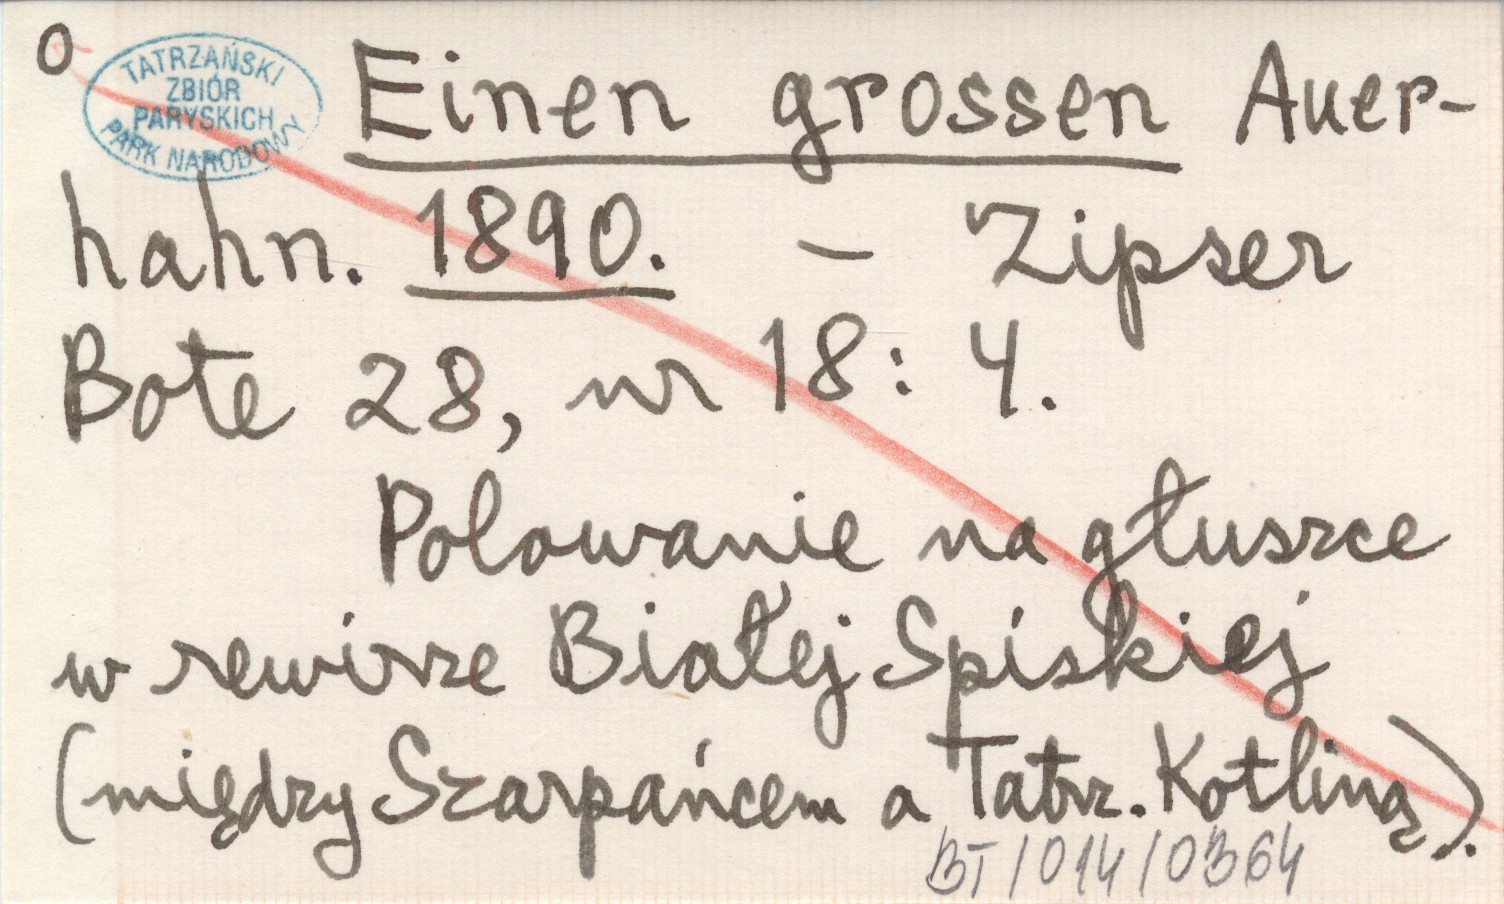 O
TATRZAŃSKI
ZBIÓR
PARYSKICH
PARK NARODOWY
Einen grossen Auer-
hahn. 1890. – Zipser
Bote 28, nr 18: 4.
Polowanie na głuszce
w rewirze Białej Spiskiej
(między Szarpańcem a Tatrz. Kotliną).
BT/014/0364